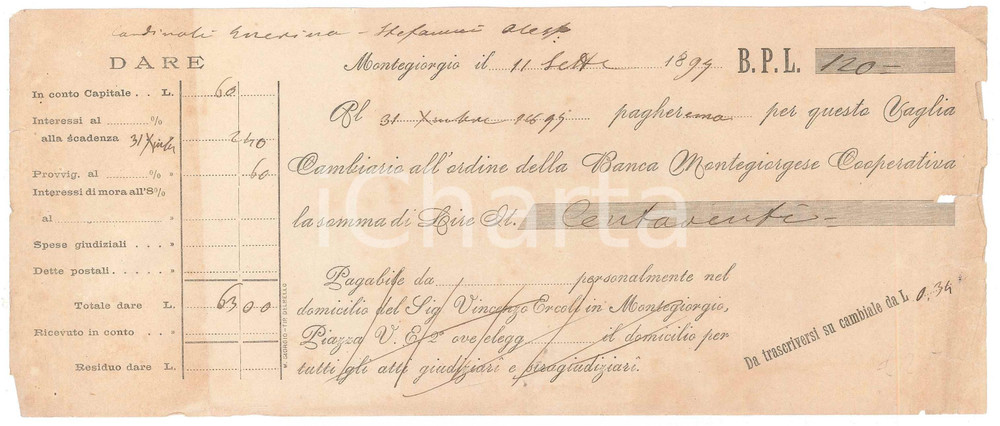 Cardinali Guerino - Stefanini Aless.
DARE
In conto Capitale . . L. 60
Interessi al ........%
alla scadenza 31 Xmbre 2 40
Provvig. al ........% " 60
Interessi di mora all'8%
al ................ "
Spese giudiziali . . . "
Dette postali . . . . . "
Totale dare L. 63 00
Ricevuto in conto "
Residuo dare L.
M. GIORGIO - TIP. DEL BELLO
Montegiorgio il 11 Sette 1895 B.P.L. 120 -
Al 31 Xmbre 1895 pagheremo per questo Vaglia
Cambiario all'ordine della Banca Montegiorgese Cooperativa
la somma di Lire It. Centoventi -
Pagabile da ................ personalmente nel
domicilio del Sig. Vincenzo Ercoli in Montegiorgio,
Piazza V. E. 2º ove elegg ........ il domicilio per
tutti gli atti giudiziarî e stragiudiziarî.
Da trascriversi su cambiale da L. 0,34
iCharta